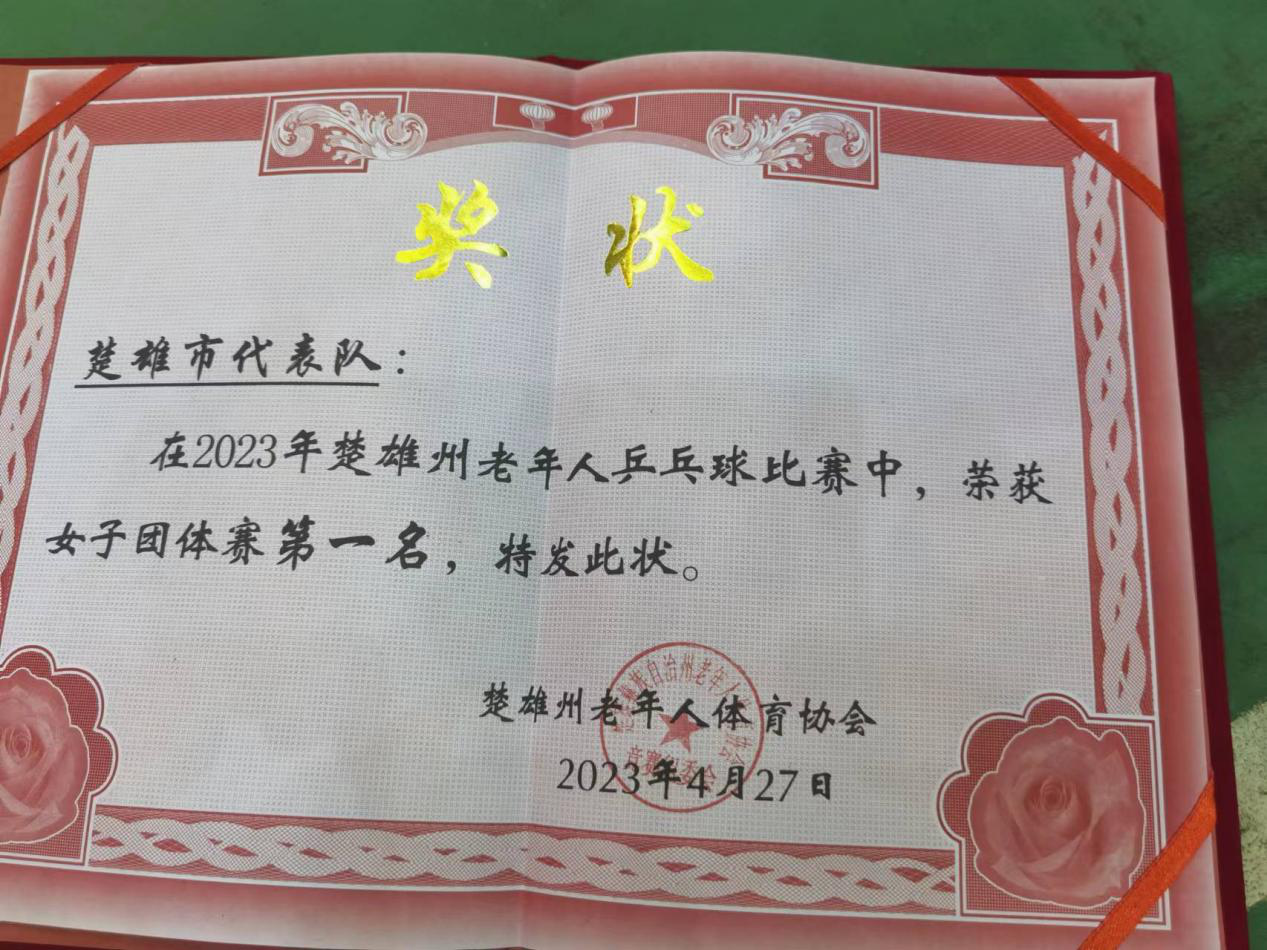 奖状
楚雄市代表队：
在2023年楚雄州老年人乒乓球比赛中，荣获
女子团体赛第一名，特发此状。
楚雄州老年人体育协会
2023年4月27日